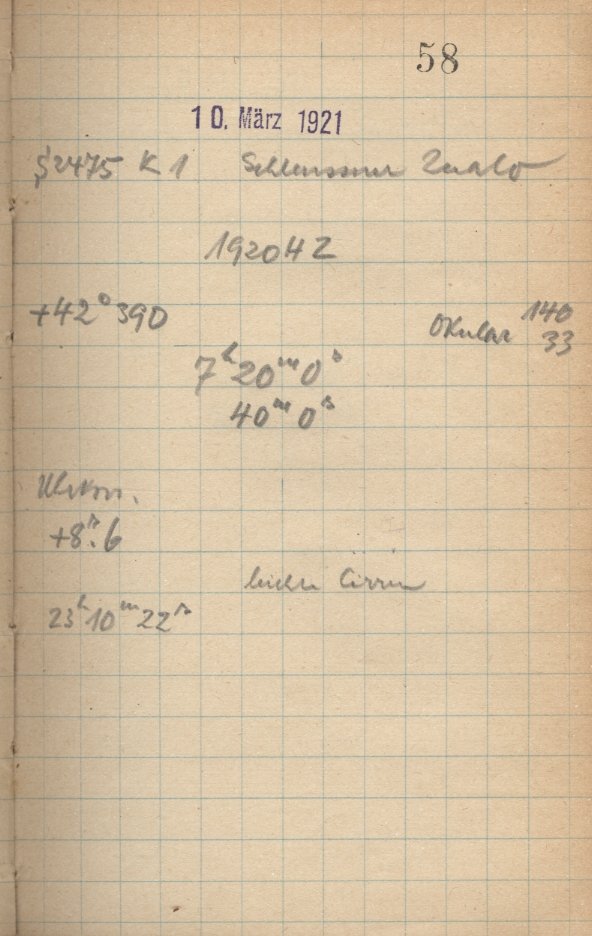 58
10. März 1921
S 2475 K 1 Schleussner
1920 HZ
+42° 390
Okular 140
33
7ʰ 20ᵐ 0ˢ
40ᵐ 0ˢ
Uhrkorr.
+8ˢ.6
leichte Cirren
23ʰ 10ᵐ 22ˢ